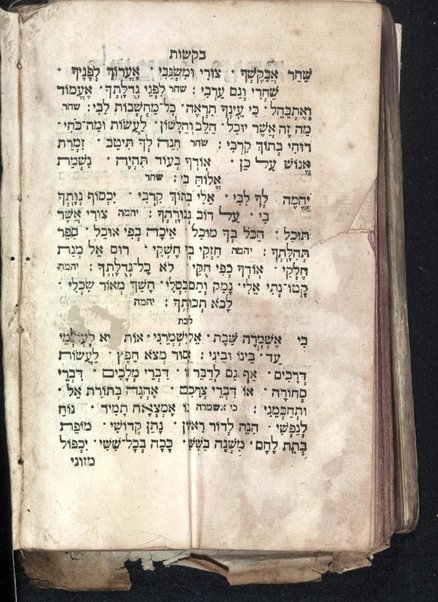 בקשות
שַׁחַר אֲבַקֶּשְׁךָ · צוּרִי וּמִשְׂגַּבִּי · אֶעֱרוֹךְ לְפָנֶיךָ ·
שַׁחְרִי וְגַם עַרְבִּי : שחר לִפְנֵי גְדֻלָּתְךָ · אֶעֱמוֹד
וְאֶתְבָּהֵל · כִּי עֵינְךָ תִרְאֶה · כָּל־מַחְשְׁבוֹת לִבִּי : שחר
מַה זֶה אֲשֶׁר יוּכַל · הַלֵּב וְהַלָּשׁוֹן · לַעֲשׂוֹת וּמַה־כֹּחִי ·
רוּחִי בְּתוֹךְ קִרְבִּי : שחר הִנֵּה לְךָ תִיטַב · זִמְרַת
אֱנוֹשׁ עַל כֵּן · אוֹדְךָ בְּעוֹד תִּהְיֶה · נִשְׁמַת
אֱלוֹהַּ בִּי : שחר
יֶהֱמֶה לְךָ לִבִּי · אֵלִי בְּתוֹךְ קִרְבִּי · יִכְסוֹף
בִּי · עַל רוֹב גְּבוּרָתְךָ : יהמה צוּרִי אֲשֶׁר
תּוּכַל · הַכֹּל בְּךָ מוּכָל · אֵיכָה בְּפִי אוּכַל · סַפֵּר
תְּהִלָּתְךָ : יהמה חָזְקִי בִּי חֶשְׁקִי · רוּם אֵל מְנַת
חֶלְקִי · אוֹדְךָ כְּפִי חֻקִּי · לֹא כָל־גְּדֻלָּתְךָ : יהמה
חֶשְׁךָ מְאוֹר שִׂכְלִי ·
לָבֹא תְכוּנָתְךָ : יהמה
לבת
כִּי אֶשְׁמְרָה שַׁבָּת · אֵל יִשְׁמְרֵנִי · אוֹת
עַד · בֵּינוֹ וּבֵינִי : אָסוּר מְצֹא חֵפֶץ · לַעֲשׂוֹת
דְּרָכִים · אַף גַּם לְדַבֵּר · דִּבְרֵי מְלָכִים · דִּבְרֵי
סְחוֹרָה · אוֹ דִּבְרֵי צְרָכִים · אֶהְגֶּה בְּתוֹרַת אֵל ·
וּתְחַכְּמֵנִי : כי אשמרה בּוֹ אֶמְצְאָה תָמִיד · נֹפֶשׁ
לְנַפְשִׁי · הִנֵּה לְדוֹר רִאשׁוֹן · נָתַן קְדוֹשִׁי · מוֹפֵת ·
בְּתֵת לֶחֶם · מִשְׁנֶה בַּשִּׁשִּׁי · כָּכָה בְּכָל־שִׁשִּׁי · יַכְפּוֹל
מזוני